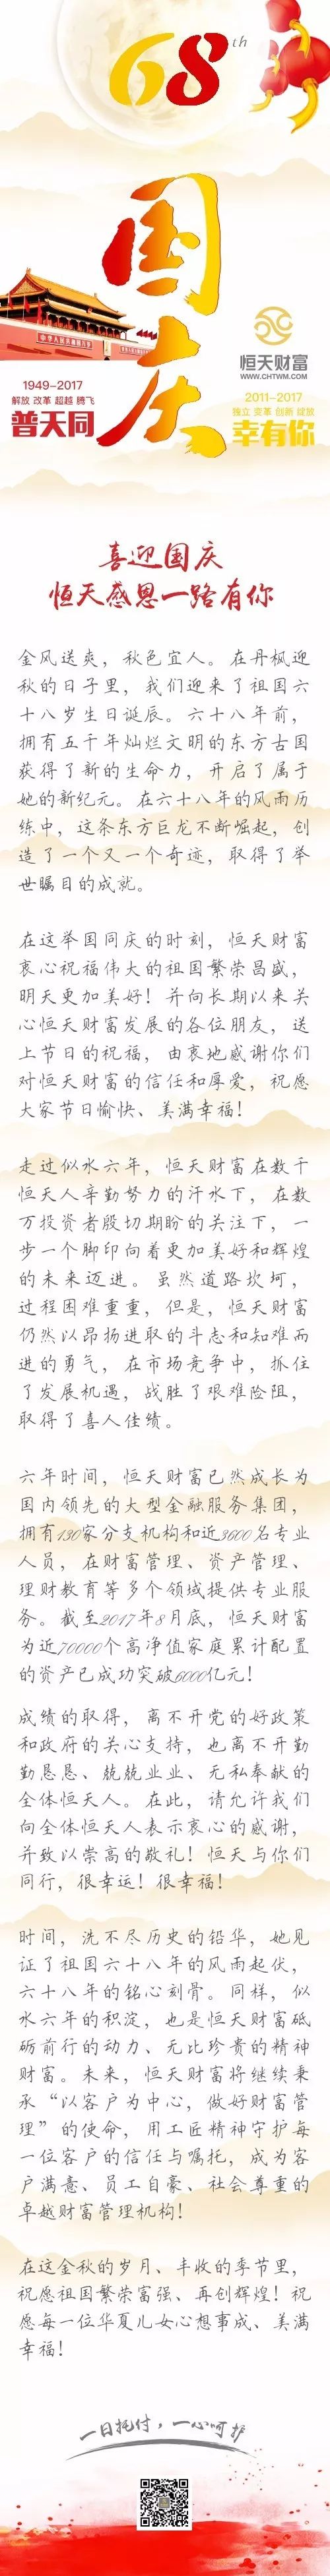 68th
国庆
恒天财富
WWW.CHTWM.COM
1949-2017
解放 改革 超越 腾飞
普天同
2011-2017
独立 变革 创新 绽放
幸有你
喜迎国庆
恒天感恩一路有你
金风送爽，秋色宜人。在丹枫迎
秋的日子里，我们迎来了祖国六
十八岁生日诞辰。六十八年前，
拥有五千年灿烂文明的东方古国
获得了新的生命力，开启了属于
她的新纪元。在六十八年的风雨历
练中，这条东方巨龙不断崛起，创
造了一个又一个奇迹，取得了举
世瞩目的成就。
在这举国同庆的时刻，恒天财富
衷心祝福伟大的祖国繁荣昌盛，
明天更加美好！并向长期以来关
心恒天财富发展的各位朋友，送
上节日的祝福，由衷地感谢你们
对恒天财富的信任和厚爱，祝愿
大家节日愉快、美满幸福！
走过似水六年，恒天财富在数千
恒天人辛勤努力的汗水下，在数
万投资者殷切期盼的关注下，一
步一个脚印向着更加美好和辉煌
的未来迈进。虽然道路坎坷，
过程困难重重，但是，恒天财富
仍然以昂扬进取的斗志和知难而
进的勇气，在市场竞争中，抓住
了发展机遇，战胜了艰难险阻，
取得了喜人佳绩。
六年时间，恒天财富已然成长为
国内领先的大型金融服务集团，
拥有130家分支机构和近3600名专业
人员，在财富管理、资产管理、
理财教育等多个领域提供专业服
务。截至2017年8月底，恒天财富
为近70000个高净值家庭累计配置
的资产已成功突破6000亿元！
成绩的取得，离不开党的好政策
和政府的关心支持，也离不开勤
勤恳恳、兢兢业业、无私奉献的
全体恒天人。在此，请允许我们
向全体恒天人表示衷心的感谢，
并致以崇高的敬礼！恒天与你们
同行，很幸运！很幸福！
时间，洗不尽历史的铅华，她见
证了祖国六十八年的风雨起伏，
六十八年的铭心刻骨。同样，似
水六年的积淀，也是恒天财富砥
砺前行的动力、无比珍贵的精神
财富。未来，恒天财富将继续秉
承“以客户为中心，做好财富管
理”的使命，用工匠精神守护每
一位客户的信任与嘱托，成为客
户满意、员工自豪、社会尊重的
卓越财富管理机构！
在这金秋的岁月、丰收的季节里，
祝愿祖国繁荣富强、再创辉煌！祝
愿每一位华夏儿女心想事成、美满
幸福！
一日托付，一心呵护